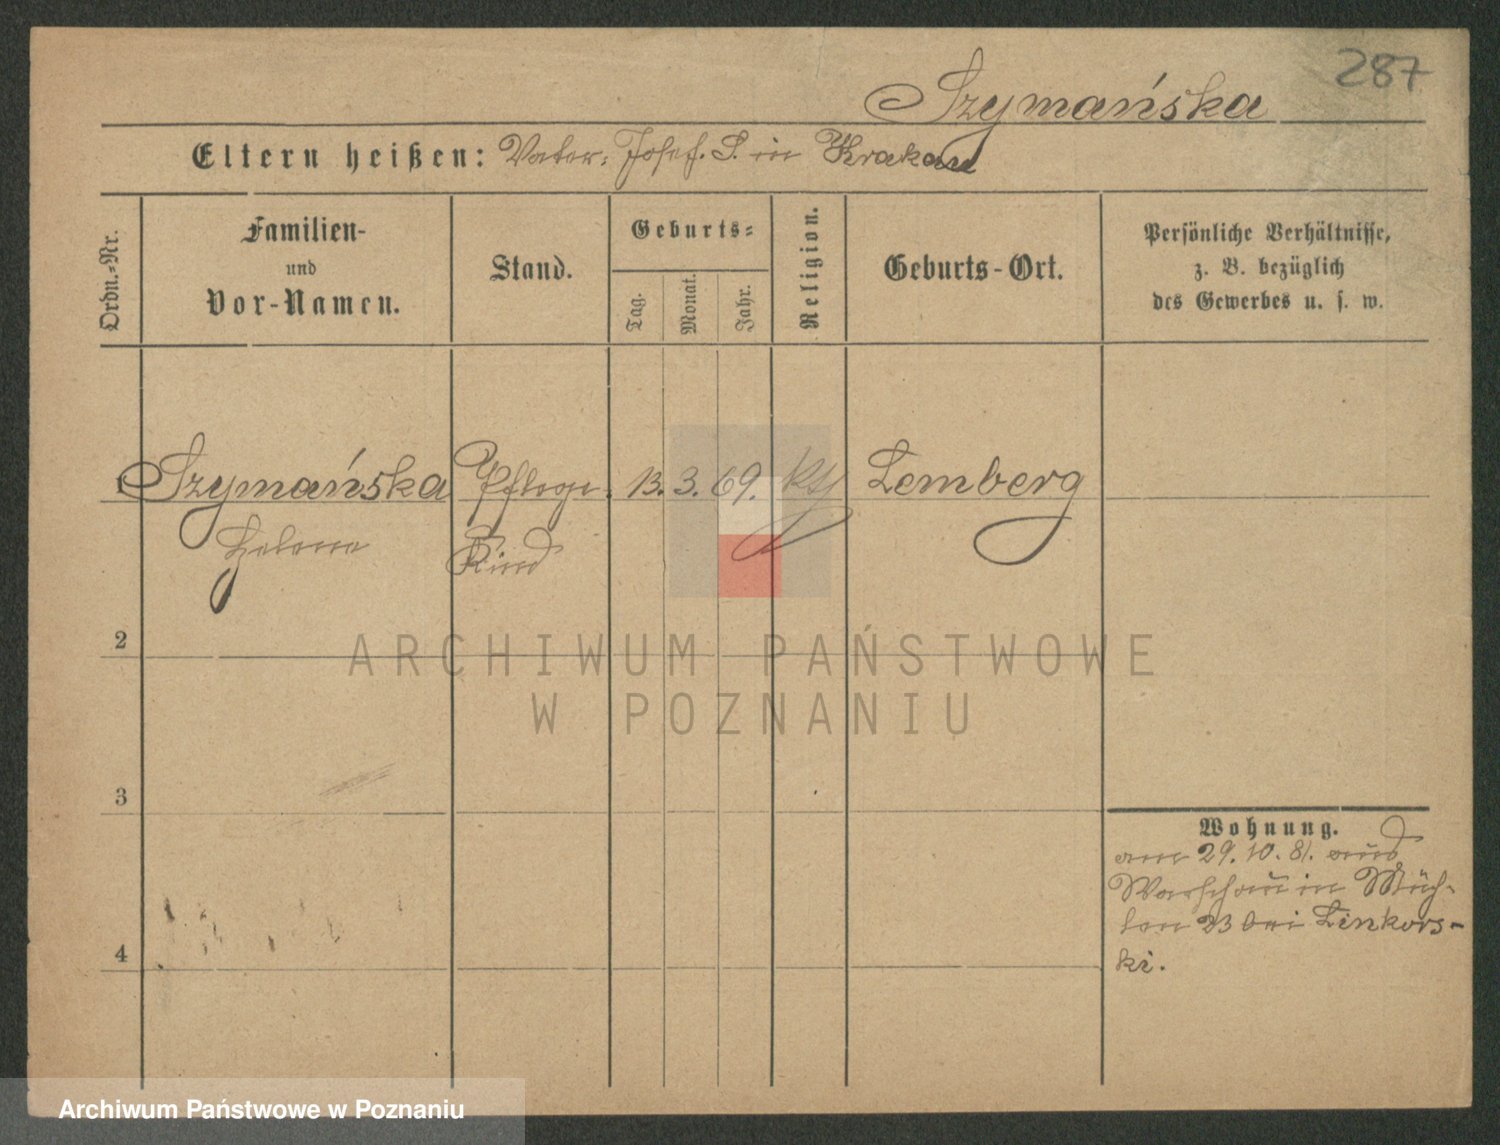 287
Szymańska
Eltern heißen: Vater: Josef S. in Krakau
Ordn.-Nr.
Familien-
und
Vor-Namen.
Stand.
Geburts-
Tag.
Monat.
Jahr.
Religion.
Geburts-Ort.
Persönliche Verhältnisse,
z. B. bezüglich
des Gewerbes u. s. w.
1 Szymańska Pflege- 13. 3. 69. kth Lemberg
Helene Kind
2
ARCHIWUM PAŃSTWOWE
W POZNANIU
3
Wohnung.
am 29. 10. 81. aus
Warschau in Müh-
len 23 bei Linkors-
ki.
4
Archiwum Państwowe w Poznaniu